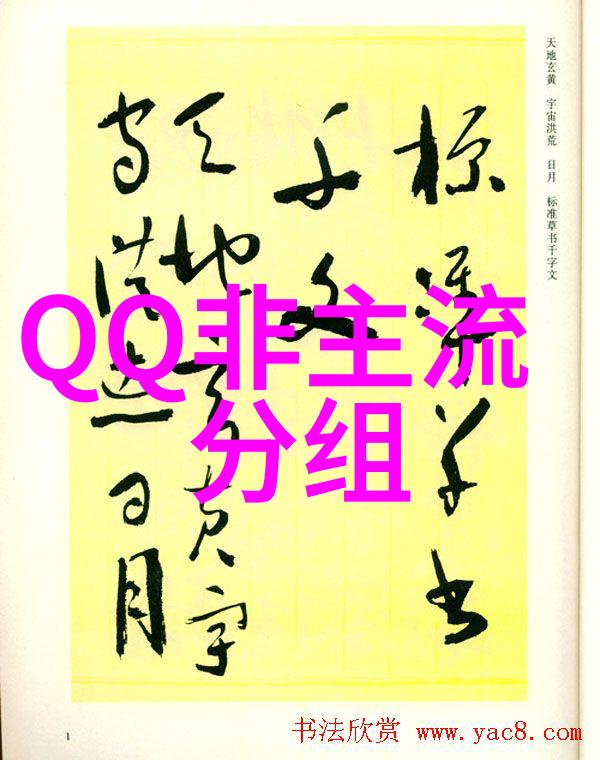 天地玄黄 宇宙洪荒 日月 标准草书千字文
标准草书
千文
天地玄黄宇
宙洪荒日月
QQ非主流
分组
1
书法欣赏 www.yac8.com